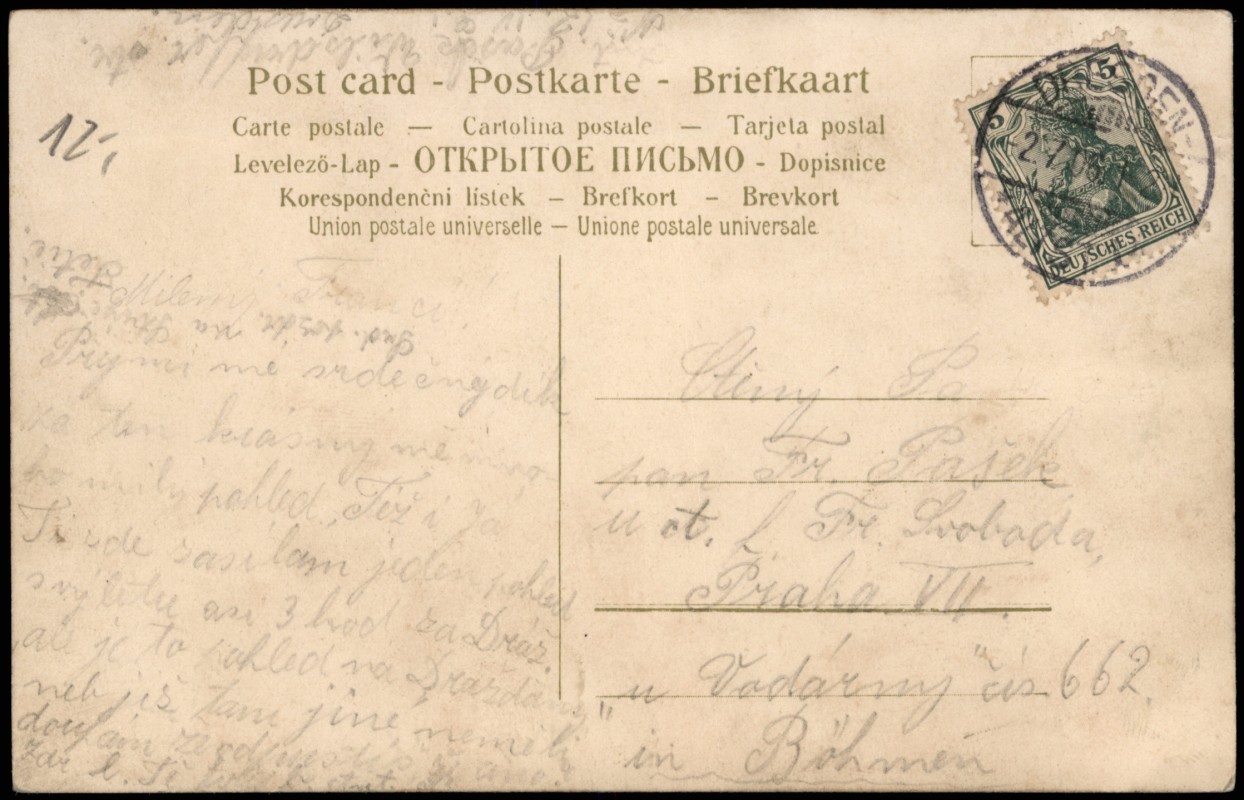 Post card - Postkarte - Briefkaart
Carte postale — Cartolina postale — Tarjeta postal
Levelező-Lap - ОТКРЫТОЕ ПИСЬМО - Dopisnice
Korespondenčni lístek — Brefkort — Brevkort
Union postale universelle — Unione postale universale
12.-
5 5
DEUTSCHES REICH
Milený
Prijmi mé srdečný dík
za ten krásný
milý pohled, Též i Já
Ti zde zasílám jeden pohled
s výletu asi 3 hod za Dráž.
ale je to pohled na Dráždany
neb již tam jiné neměli
doufám
Ctěný Pa
pan Fr. Pašek
u ct. f. Fr. Svoboda,
Praha VII.
"u Vodárny" čís 662.
in Böhmen